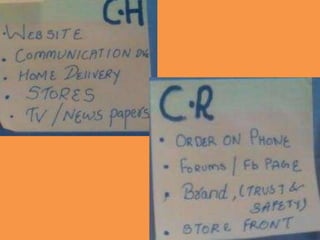 C·H
· WEBSITE
· COMMUNICATION
· HOME DELIVERY
· STORES
· TV / NEWS papers
C·R
· ORDER ON PHONE
· FORUMS / Fb PAGE
· Brand, (TRUST &
SAFETY)
· STORE FRONT